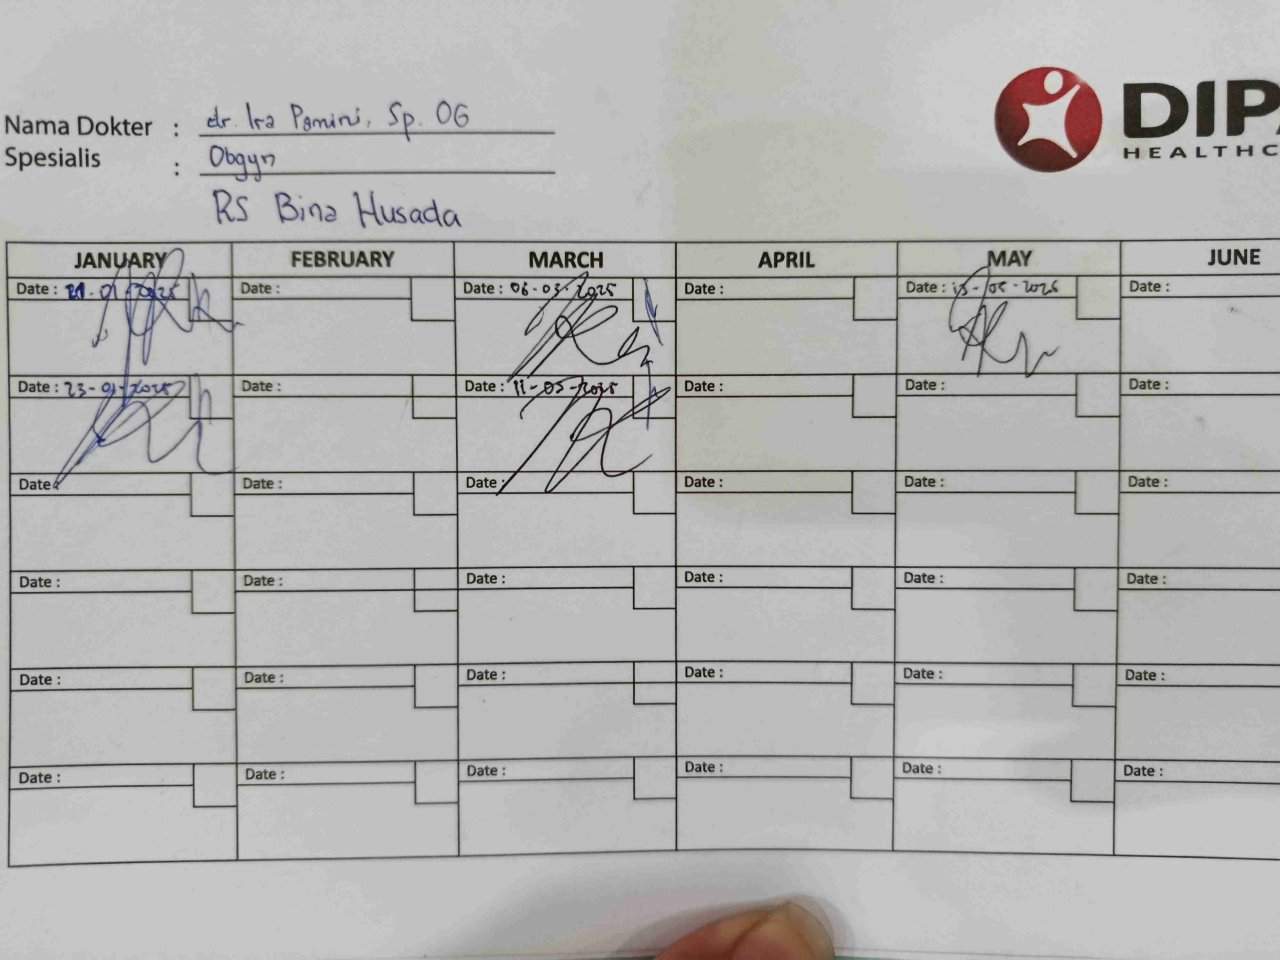 Nama Dokter : dr. Ira Pamini, Sp. OG
Spesialis : Obgyn
RS Bina Husada
DIPA
HEALTHC
JANUARY FEBRUARY MARCH APRIL MAY JUNE
Date : 21-01-2025 Date : Date : 06-03-2025 Date : Date : 15-05-2025 Date :
Date : 23-01-2025 Date : Date : 11-03-2025 Date : Date : Date :
Date : Date : Date : Date : Date : Date :
Date : Date : Date : Date : Date : Date :
Date : Date : Date : Date : Date : Date :
Date : Date : Date : Date : Date : Date :